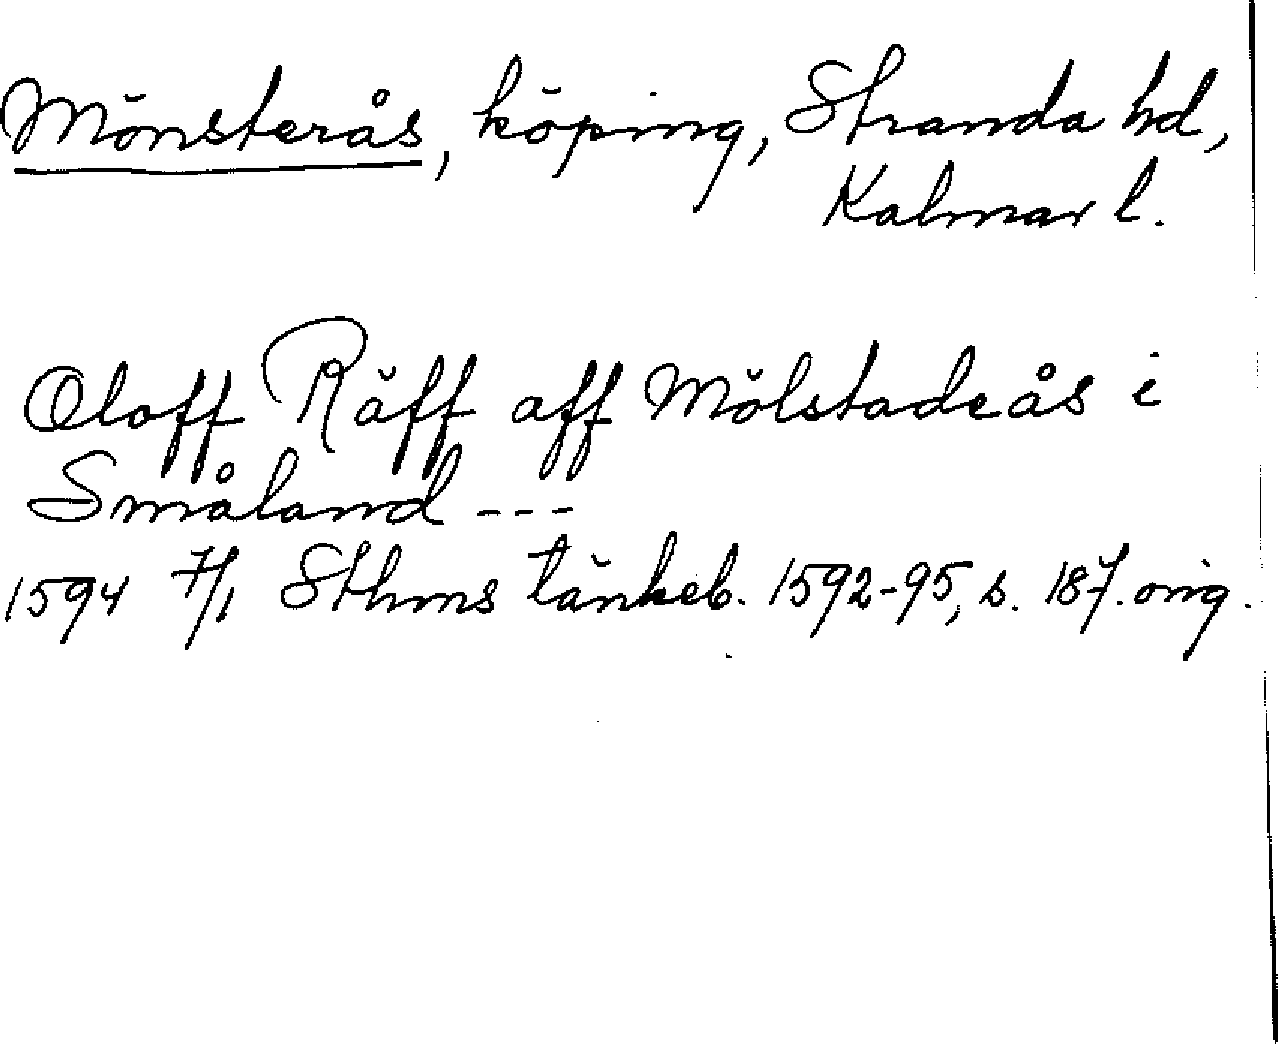 Mönsterås, köping, Stranda hd,
Kalmar l.
Oloff Räff aff Mölstadeås i
Småland ---
1594 7/1 Sthms tänkeb. 1592-95, s. 187. orig.